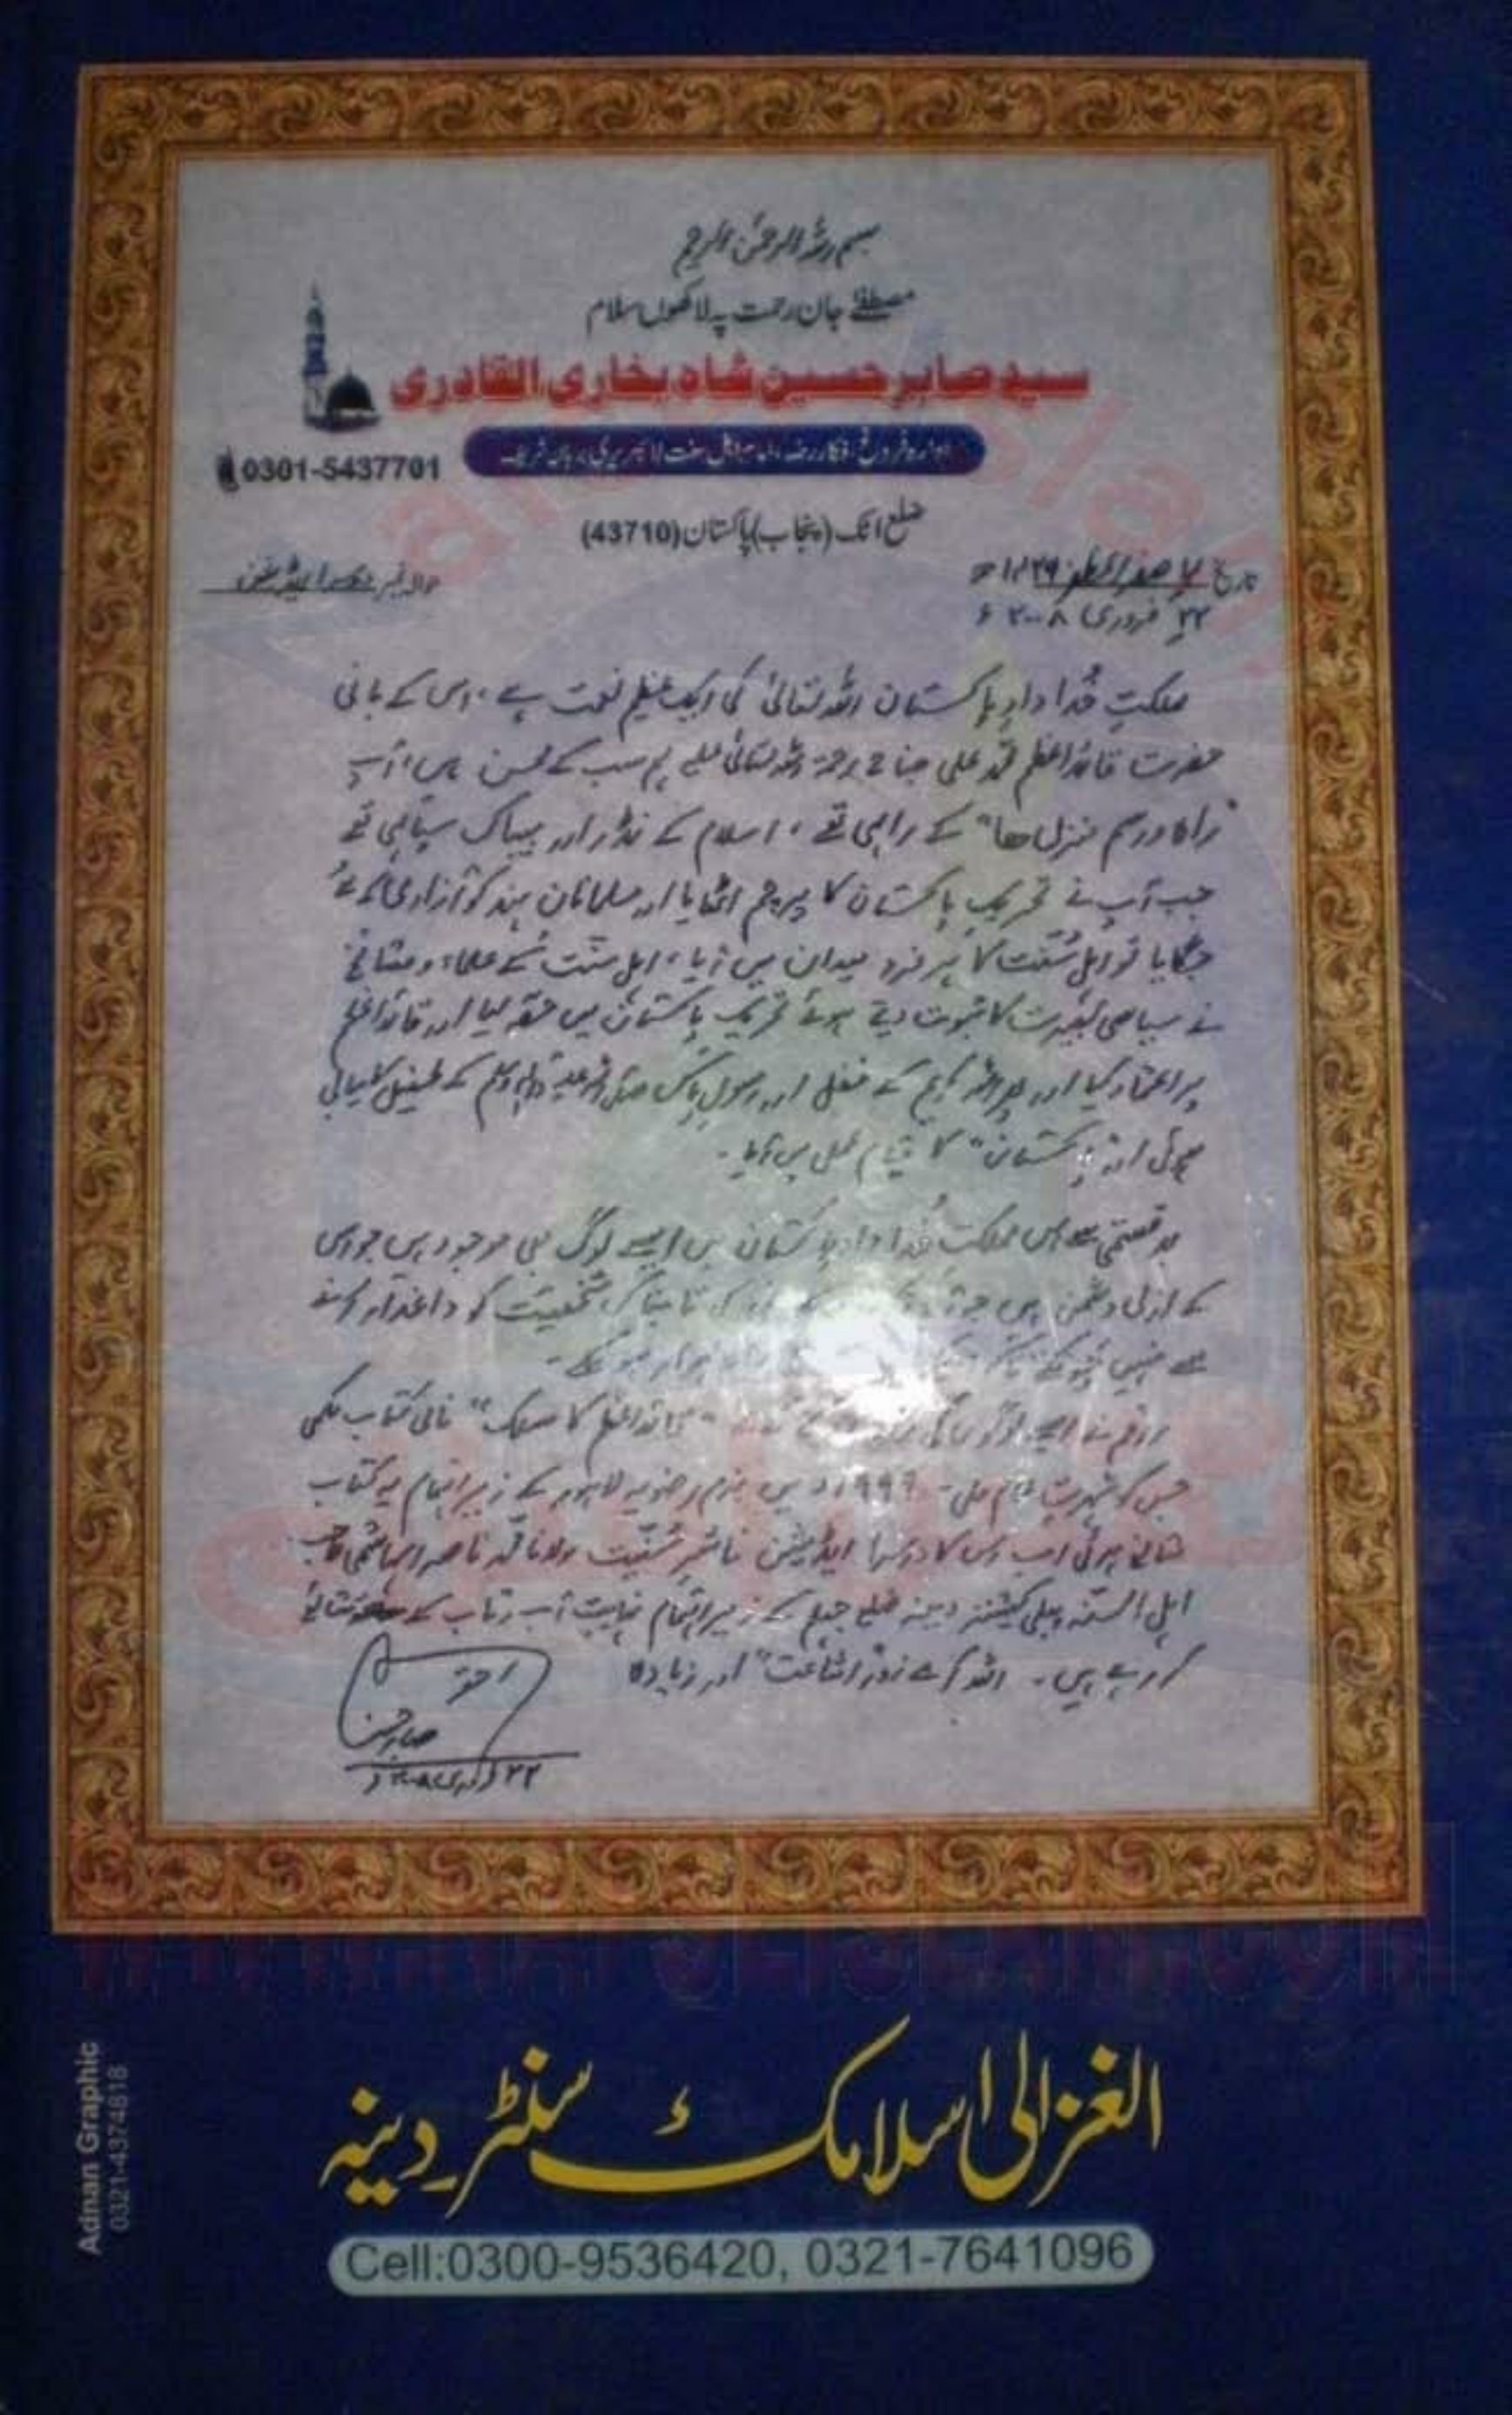 بسم اللہ الرحمن الرحیم
مصطفےٰ جان رحمت پہ لاکھوں سلام
سید صابر حسین شاہ بخاری القادری
ادارہ فروغ افکار رضا، امام اہل سنت لائبریری برہان شریف
0301-5437701
ضلع اٹک (پنجاب) پاکستان (43710)
تاریخ صفر المظفر ۱۴۲۹ھ
حوالہ نمبر
۲۲ فروری ۲۰۰۸ء
مملکتِ خُداداد پاکستان اللہ تعالیٰ کی ایک عظیم نعمت ہے، اس کے بانی
حضرت قائداعظم محمد علی جناح رحمۃ اللہ تعالیٰ علیہ ہم سب کے محسن ہیں، آپ
"راہ و رسم منزل ھا" کے راہی تھے، اسلام کے نڈر اور بیباک سپاہی تھے
جب آپ نے تحریکِ پاکستان کا پرچم اٹھایا اور مسلمانان ہند کو آزادی کے لئے
جگایا تو اہل سُنّت کا ہر فرد میدان میں آیا، اہل سنّت کے علماء و مشائخ
نے سیاسی بصیرت کا ثبوت دیتے ہوئے تحریک پاکستان میں حصّہ لیا اور قائداعظم
پر اعتماد کیا اور پھر اللہ کریم کے فضل اور رسول پاک صلی اللہ علیہ وآلہ وسلم کے طفیل کامیابی
ہوئی اور "پاکستان" کا قیام عمل میں آیا۔
بدقسمتی سے اس مملکت خُداداد پاکستان میں ایسے لوگ بھی موجود ہیں جو اس
کے ازلی دشمن ہیں جو کی تابناک شخصیت کو داغدار کرنے
سے نہیں چوکتے تاکہ ہموار ہو سکے۔
راقم نے ایسے لوگوں "قائداعظم کا مسلک" نامی کتاب لکھی
جس کو شہرت عام ملی۔ ۱۹۹۹ء میں بزم رضویہ لاہور کے زیر اہتمام یہ کتاب
شائع ہوئی اب اس کا دوسرا ایڈیشن ناشرِ سُنّیت مولانا محمد ناصر الہاشمی صاحب
اہل السنۃ پبلی کیشنز دینہ ضلع جہلم کے زیر اہتمام نہایت آب و تاب کے شائع
کر رہے ہیں۔ اللہ کرے زورِ اشاعت" اور زیادہ
احقر
صابر حسین
۲۲ فروری ۲۰۰۸ء
الغزالی اسلامک سنٹر دینہ
Cell:0300-9536420, 0321-7641096
Adnan Graphic
0321-4374818